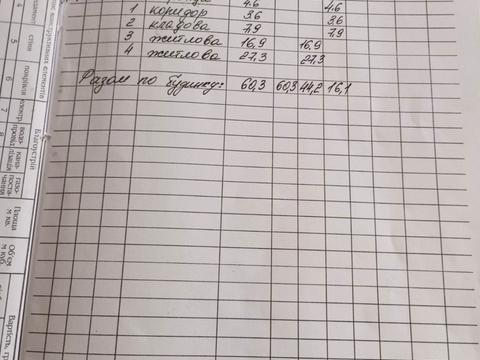 4.6 4.6
1 коридор 3.6 3.6
2 кладова 7,9 7,9
3 житлова 16,9 16,9
4 житлова 27,3 27,3
Разом по будинку: 60,3 60,3 44,2 16,1
4
5 стіни
6 покрівля
7 електр.
8
Благоустрій
Площа м кв.
Об'єм м куб.
Вартість,